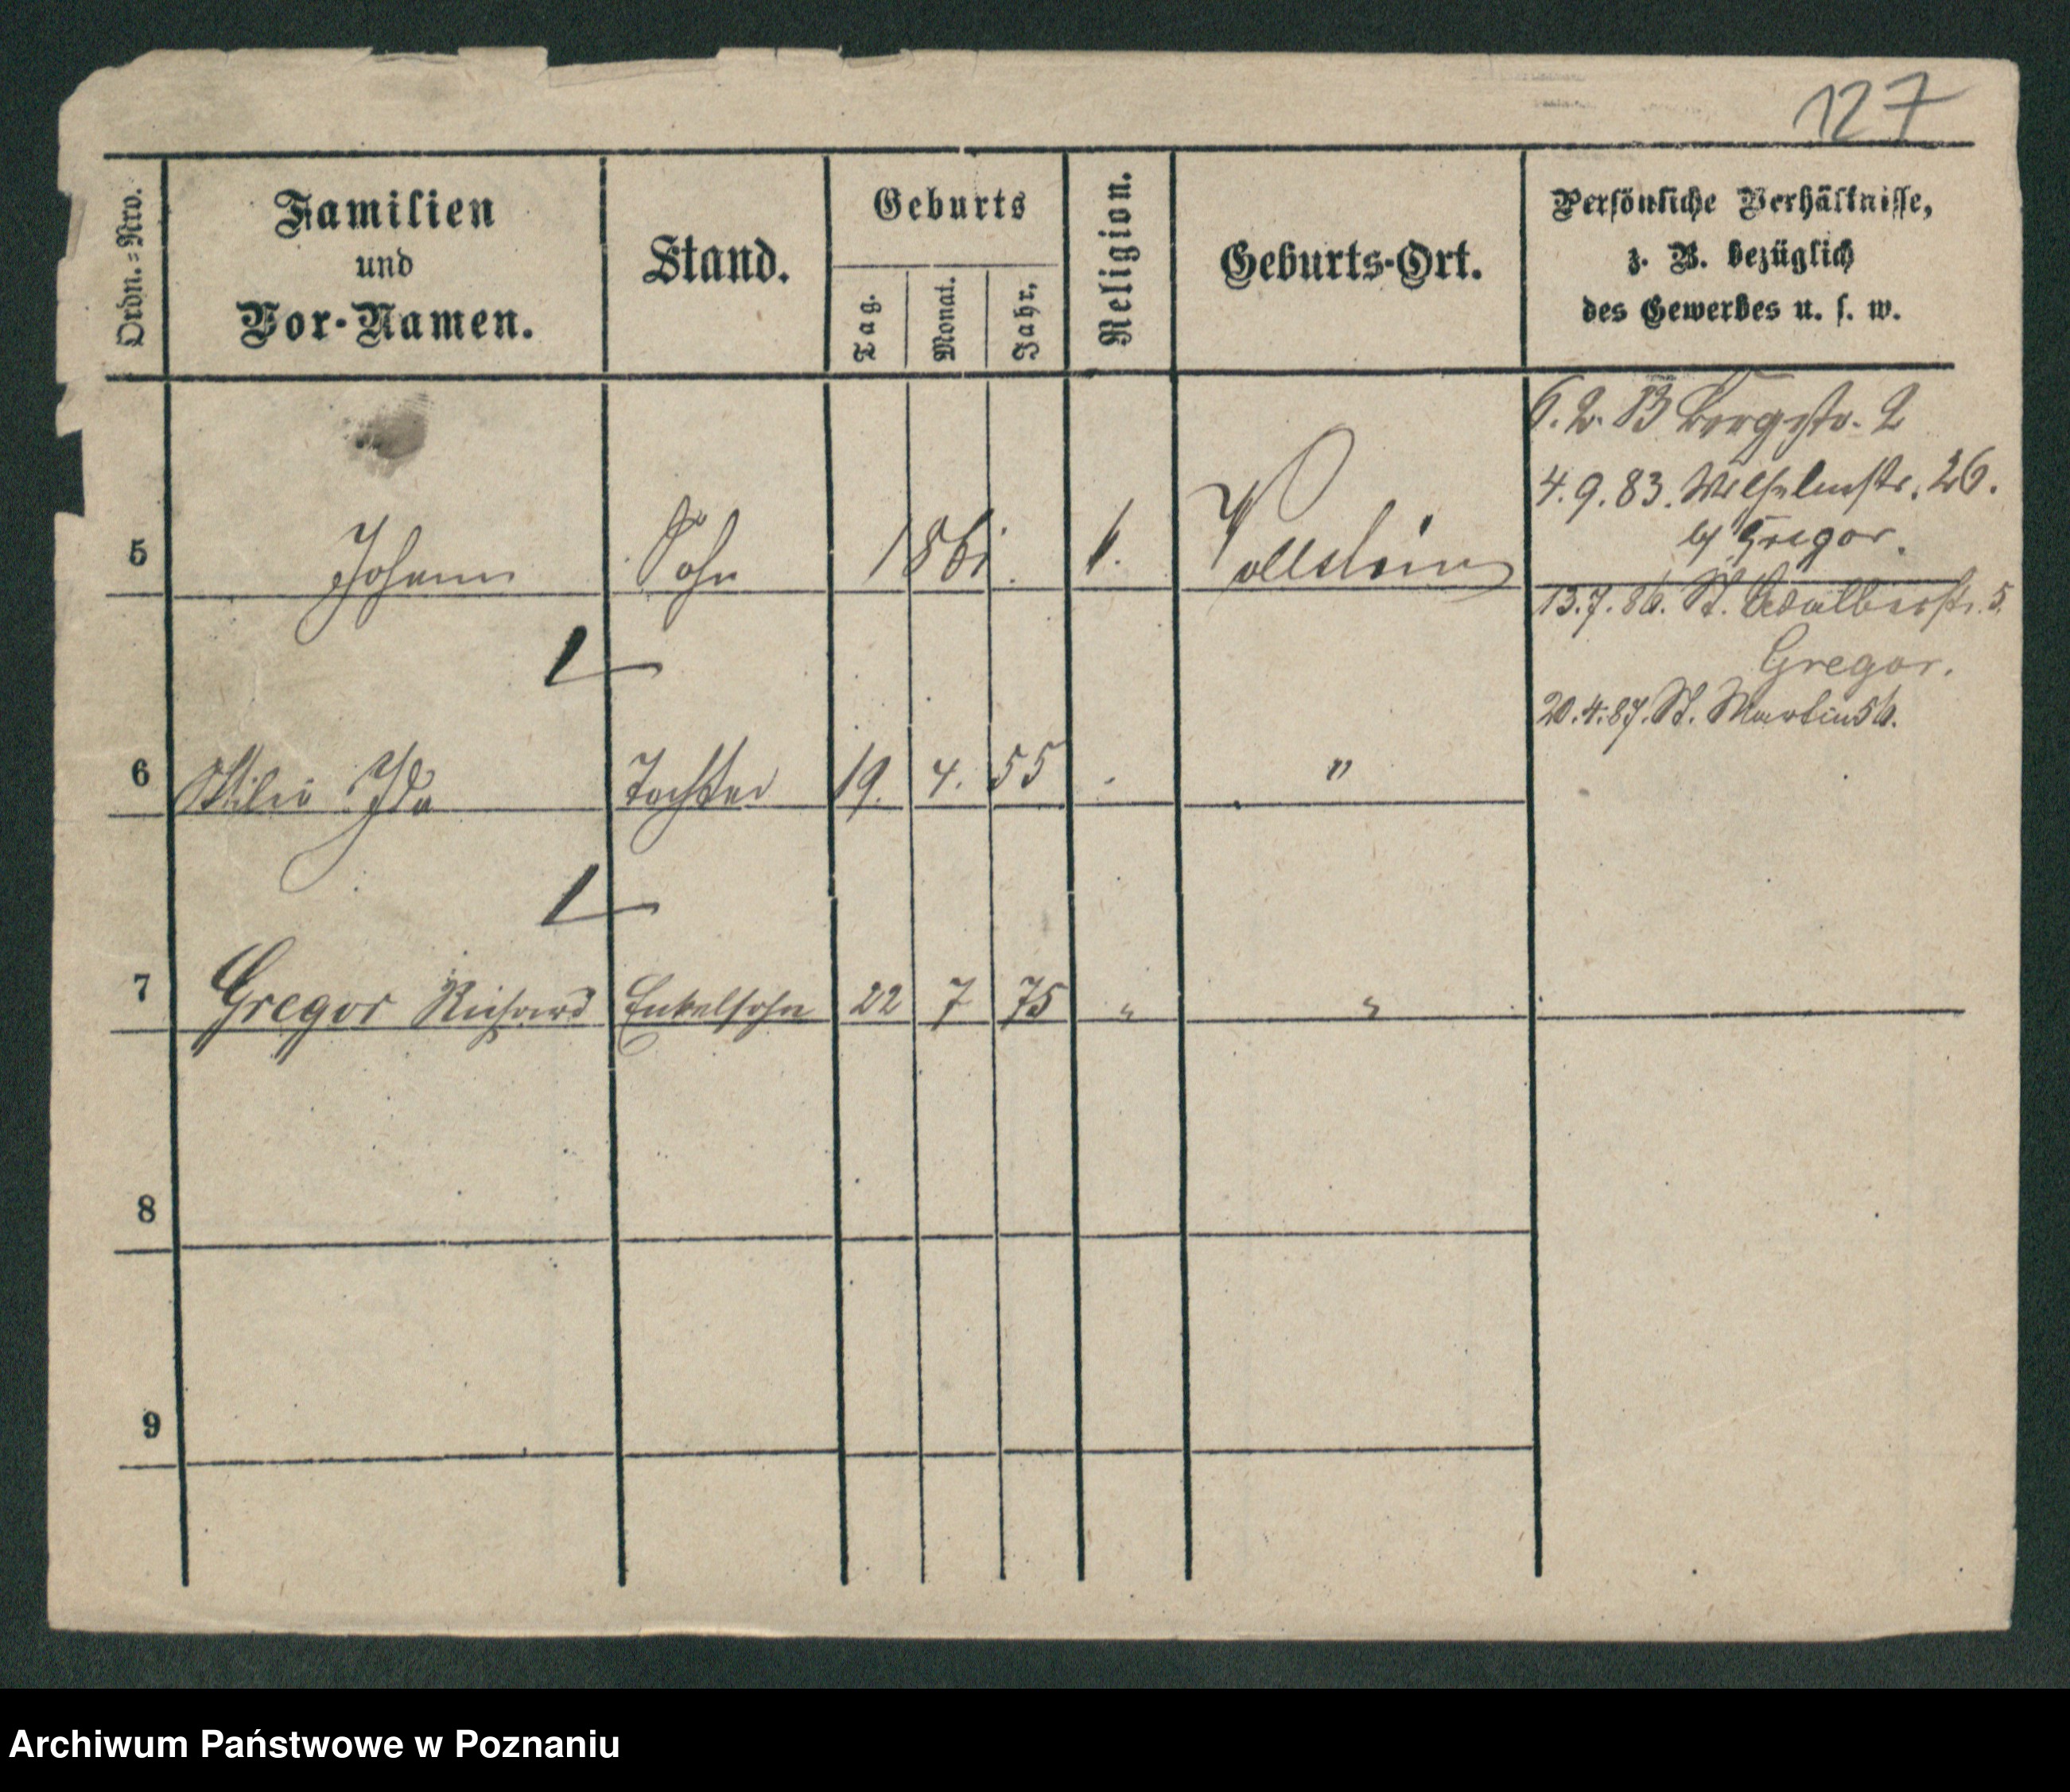 127
Ordn.=Nro.
Familien
und
Vor-Namen.
Stand.
Geburts
Tag.
Monat.
Jahr.
Religion.
Geburts-Ort.
Persönliche Verhältnisse,
z. B. bezüglich
des Gewerbes u. s. w.
6. 2. 83 Bergstr. 2
4. 9. 83. Wilhelmstr. 26.
b/ Gregor.
5 Johann Sohn 1861. k. Wollstein
13. 7. 86. St. Adalbertstr. 5.
Gregor.
20. 4. 87. St. Martin 56.
6 Ida Tochter 19. 4. 55 "
7 Gregor Richard Enkelsohn 22 7 75 " "
8
9
Archiwum Państwowe w Poznaniu